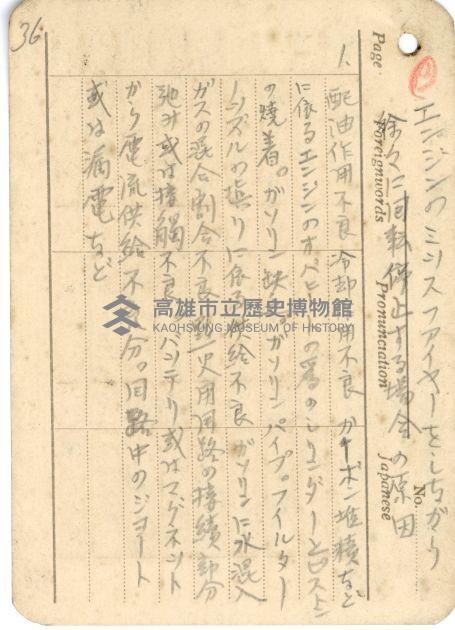 36
Page
Foreignwords
Pronunciation
Japanese
No.
エンジンのミスファイヤーをしながら
徐々に回転停止する場合の原因
1. 配油作用不良 冷却作用不良 カーボン堆積など
に依るエンジンのオバヒートの為のシリンダーとピストン
の焼着。ガソリン缺乏。ガソリンパイプ。フイルター
ノズルの填りに依る供給不良 ガソリンに水混入
ガスの混合割合不良 火用回路の接續部分
弛み或は接觸不良 バッテリ或はマグネット
から電流供給不十分。回路中のショート
或は漏電など
高雄市立歷史博物館
KAOHSIUNG MUSEUM OF HISTORY